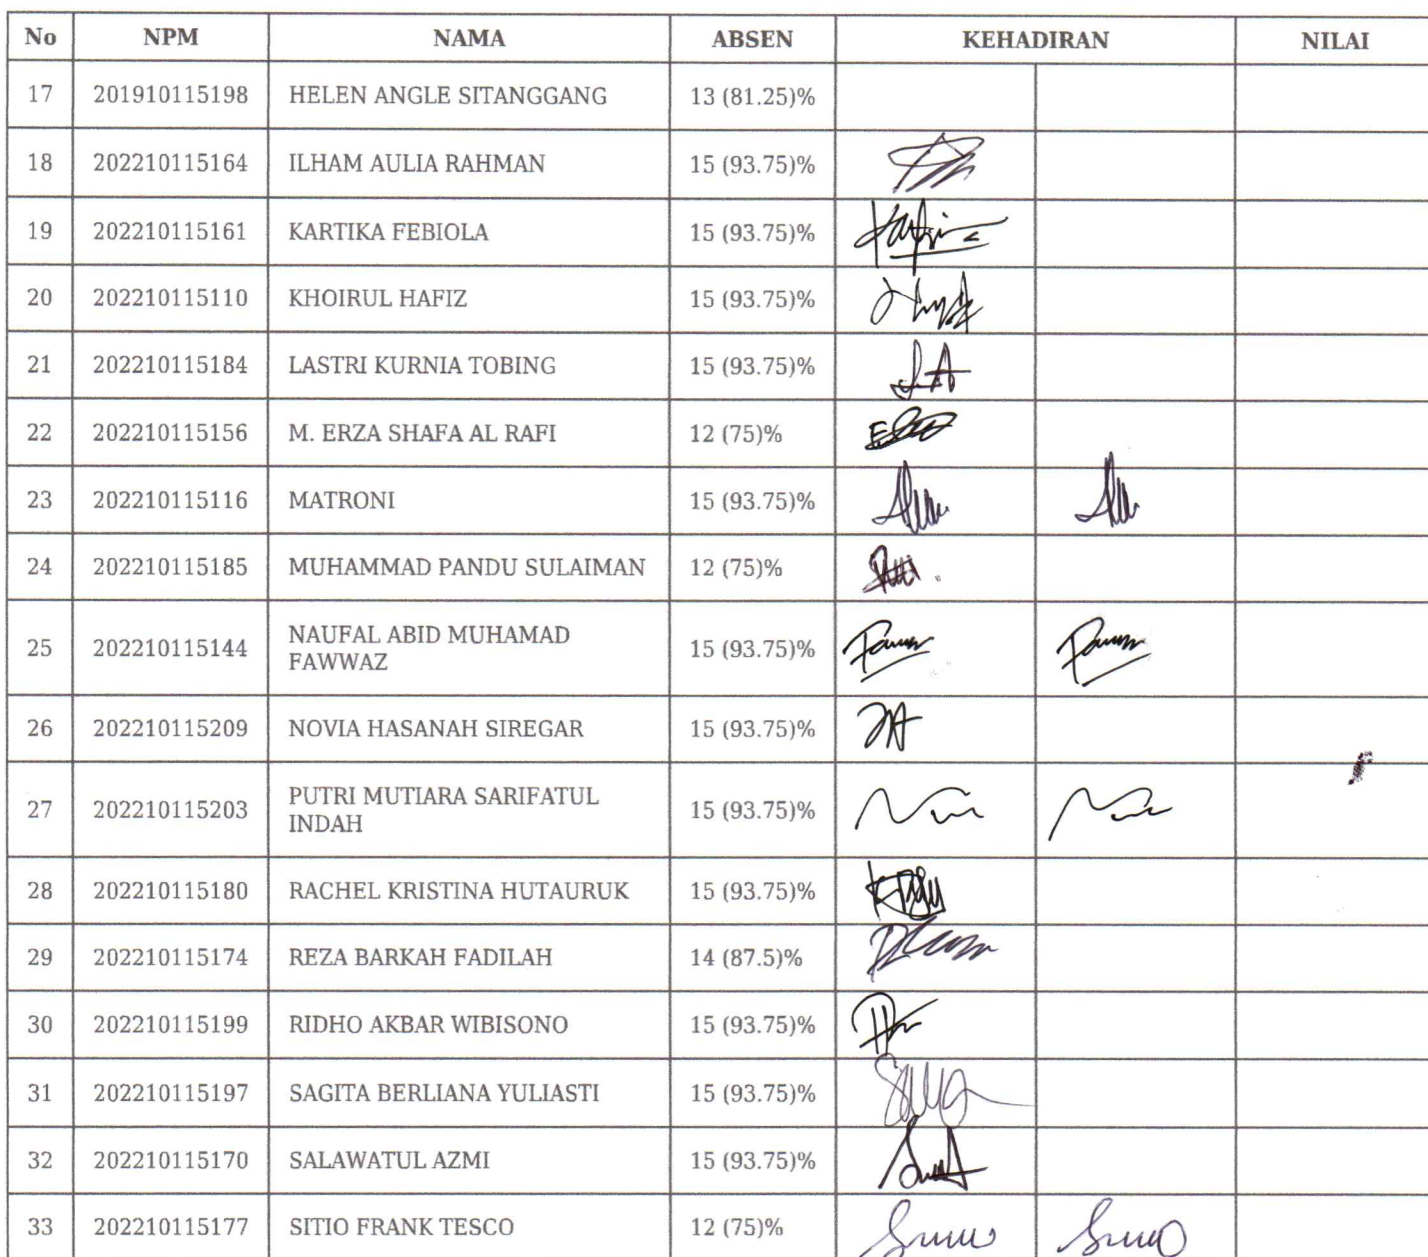 No NPM NAMA ABSEN KEHADIRAN NILAI
17 201910115198 HELEN ANGLE SITANGGANG 13 (81.25)%
18 202210115164 ILHAM AULIA RAHMAN 15 (93.75)%
19 202210115161 KARTIKA FEBIOLA 15 (93.75)%
20 202210115110 KHOIRUL HAFIZ 15 (93.75)%
21 202210115184 LASTRI KURNIA TOBING 15 (93.75)%
22 202210115156 M. ERZA SHAFA AL RAFI 12 (75)%
23 202210115116 MATRONI 15 (93.75)%
24 202210115185 MUHAMMAD PANDU SULAIMAN 12 (75)%
25 202210115144 NAUFAL ABID MUHAMAD
FAWWAZ 15 (93.75)%
26 202210115209 NOVIA HASANAH SIREGAR 15 (93.75)%
27 202210115203 PUTRI MUTIARA SARIFATUL
INDAH 15 (93.75)%
28 202210115180 RACHEL KRISTINA HUTAURUK 15 (93.75)%
29 202210115174 REZA BARKAH FADILAH 14 (87.5)%
30 202210115199 RIDHO AKBAR WIBISONO 15 (93.75)%
31 202210115197 SAGITA BERLIANA YULIASTI 15 (93.75)%
32 202210115170 SALAWATUL AZMI 15 (93.75)%
33 202210115177 SITIO FRANK TESCO 12 (75)%